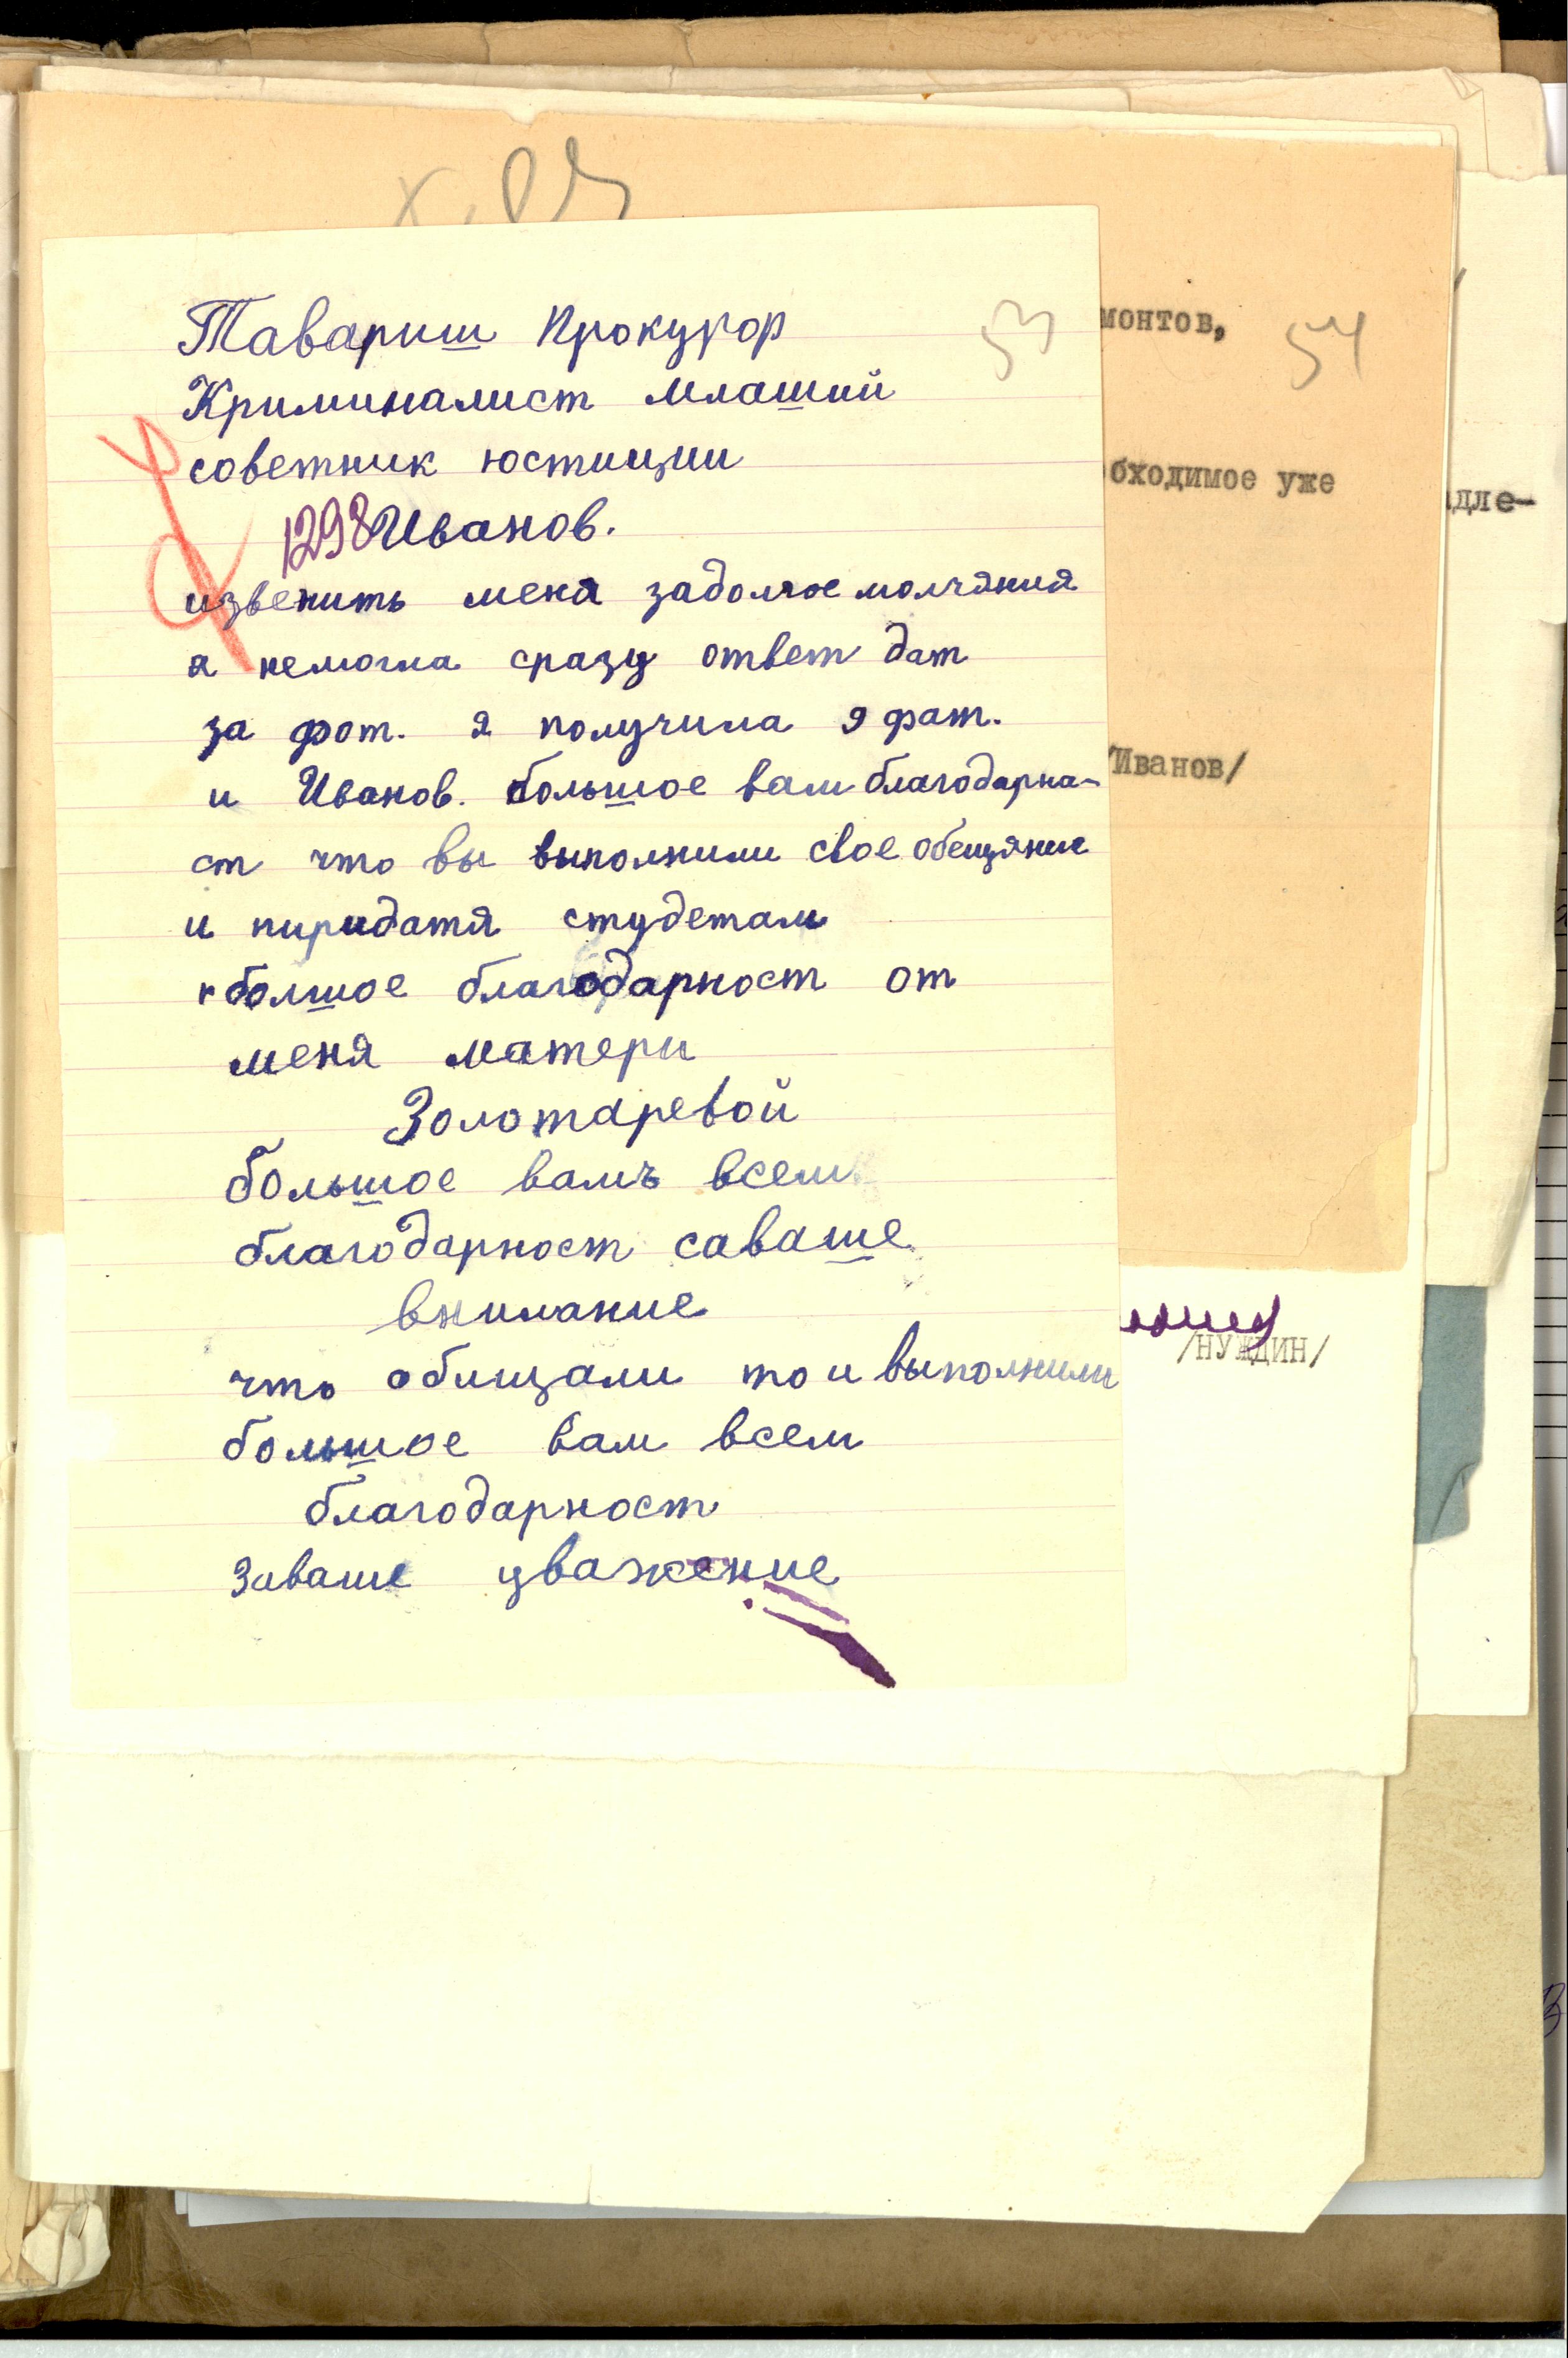 Тавариш Прокурор
53
монтов,
54
Криминалист млаший
советник юстиции
обходимое уже
адле-
1298 Иванов.
извенить меня задолгое молчяния
я немогла сразу ответ дат
за фот. я получила 9 фат.
/Иванов/
и Иванов. большое вам благодарна-
ст что вы выполнили свое обещяние
и пиридатя студетам
болшое благодарност от
меня матери
Золотаревой
большое вамъ всем
благодарност саваше
внимание
/НУЖДИН/
что обищали то и выполнили
большое вам всем
благодарност
Заваше уважение